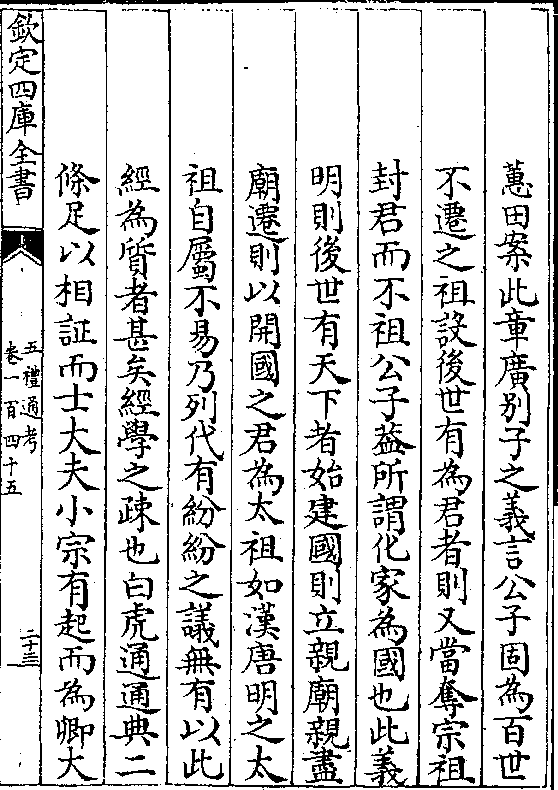 蕙田案此章廣别子之義言公子固為百世
不遷之祖設後世有為君者則又當奪宗祖
封君而不祖公子葢所謂化家為國也此義
明則後世有天下者始建國則立親廟親盡
廟遷則以開國之君為太祖如漢唐明之太
祖自屬不易乃列代有紛紛之議無有以此
經為質者甚矣經學之疎也白虎通通典二
條足以相証而士大夫小宗有起而為卿大
欽定四庫全書
五禮通考
卷一百四十五
二十三